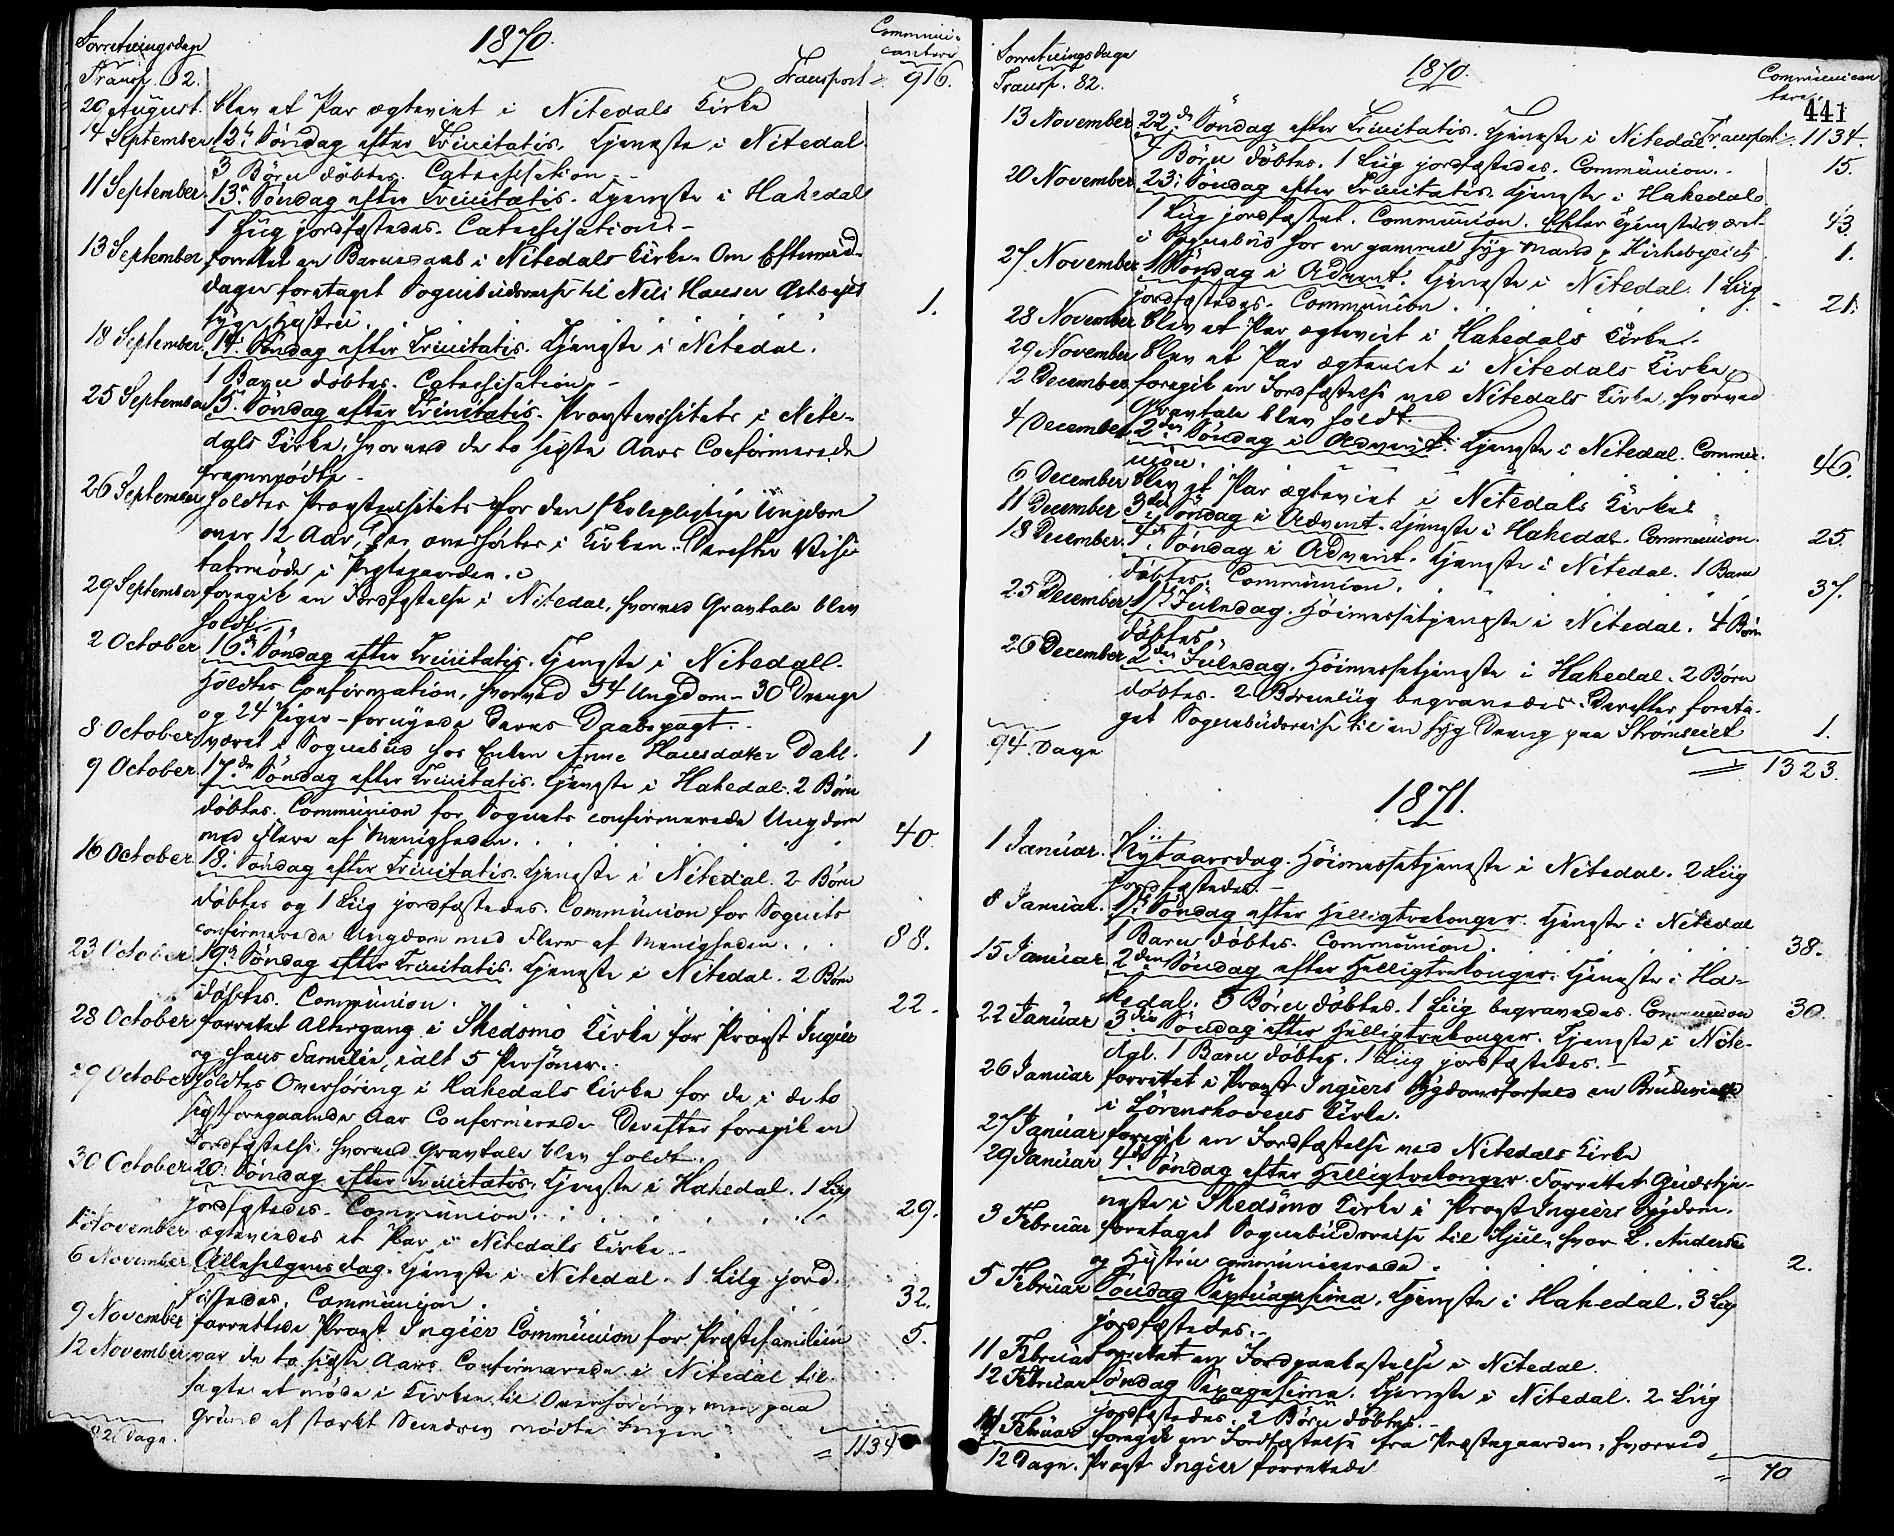 Forretningsdage 1870. Communi-
cantere
Transp. 62. Transport = 916.
20 August. blev et Par ægteviet i Nitedals Kirke
4 September 12te Søndag efter Trinitatis. Tjeneste i Nitedal.
3 Børn døbtes. Catechisation. -
11 September 13de Søndag efter Trinitatis. Tjeneste i Hakedal
1 Liig jordfæstedes. Catechisation. -
13 September forrettet en Barnedaab i Nitedals Kirke. Om Eftermid-
dagen foretaget Sognebudsreise til Niels Hansen
syge Hustru. 1.
18 September 14. Søndag efter Trinitatis. Tjeneste i Nitedal.
1 Barn døbtes. Catechisation. -
25 September 15. Søndag efter Trinitatis. Provstevisitats i Nite-
dals Kirke, hvorved de to sidste Aars Confirmerede
fremmødte. -
26 September holdtes Provstevisitats for den skolepligtige Ungdom
over 12 Aar, der overhørtes i Kirken. Derefter Visi-
tatsmøde i Præstegaarden.
29 September foregik en Jordfæstelse i Nitedal, hvorved Gravtale blev
holdt. -
2 October 16de Søndag efter Trinitatis. Tjeneste i Nitedal.
Holdtes Confirmation, hvorved 54 Ungdom - 30 Drenge
og 24 Piger - fornyede deres Daabspagt. -
8 October været i Sognebud hos Enken Anne Hansdatter Dahl. 1
9 October 17de Søndag efter Trinitatis. Tjeneste i Hakedal. 2 Børn
døbtes. Communion for Sognets confirmerede Ungdom
med Flere af Menigheden. 40.
16 October 18. Søndag efter Trinitatis. Tjeneste i Nitedal. 2 Børn
døbtes og 1 Liig jordfæstedes. Communion for Sognets
confirmerede Ungdom med Flere af Menigheden. 88.
23 October 19de Søndag efter Trinitatis. Tjeneste i Nitedal. 2 Børn
døbtes. Communion. 22.
28 October forrettet Altergang i Skedsmo Kirke for Provst Ingier
og hans Familie, ialt 5 Personer.
29 October holdtes Overhøring i Hakedals Kirke for de i de to
sidstforegaaende Aar Confirmerede. Derefter foregik en
Jordfæstelse, hvorved Gravtale blev holdt.
30 October 20. Søndag efter Trinitatis. Tjeneste i Hakedal. 1 Liig
jordfæstedes. Communion. 29.
November ægteviedes et Par i Nitedals Kirke.
6 November Allehelgensdag. Tjeneste i Nitedal. 1 Liig jord-
fæstedes. Communion. 32.
9 November forrettede Provst Ingier Communion for Præstefamilien 5.
12 November var de to sidste Aars Confirmerede i Nitedal til-
sagte at møde i Kirken til Overhøring, men paa
Grund af stærkt Sneedrev mødte Ingen.
82 Dage. = 1134
Forretningsdage 1870. Communican-
tere
Transp. 82. 441
13 November 22de Søndag efter Trinitatis. Tjeneste i Nitedal. Transport = 1134.
4 Børn døbtes. 1 Liig jordfæstedes. Communion. 15.
20 November 23. Søndag efter Trinitatis. Tjeneste i Hakedal.
1 Liig jordfæstet. Communion. Efter Tjenesten været 43
i Sognebud hos en gammel syg Mand 1.
27. November 1 Søndag i Advent. Tjeneste i Nitedal. 1 Liig
jordfæstedes. Communion. 21.
28 November blev et Par ægteviet i Hakedals Kirke.
29 November blev et Par ægteviet i Nitedals Kirke.
2 December foregik en Jordfæstelse ved Nitedals Kirke, hvorved
Gravtale blev holdt.
4 December 2den Søndag i Advent. Tjeneste i Nitedal. Commu-
nion. 46.
6 December blev et Par ægteviet i Nitedals Kirke.
11 December 3die Søndag i Advent. Tjeneste i Hakedal. Communion. 25.
18 December. 4de Søndag i Advent. Tjeneste i Nitedal. 1 Barn
døbtes. Communion. 37.
25 December 1ste Juledag. Høimessetjeneste i Nitedal. 4 Børn
døbtes.
26 December 2den Juledag. Høimessetjeneste i Hakedal. 2 Børn
døbtes. 2 Børneliig begravedes. Derefter foreta-
get Sognebudsreise til en syg Dreng paa Strømseiet 1.
94. Dage = 1323.
1871.
1 Januar. Nytaarsdag. Høimessetjeneste i Nitedal. 2 Liig
jordfæstedes. -
8 Januar. 1ste Søndag efter Helligtrekonger. Tjeneste i Nitedal
1 Barn døbtes. Communion. 38.
15 Januar 2den Søndag efter Helligtrekonger. Tjeneste i Ha-
kedal. 5 Børn døbtes. 1 Liig begravedes. Communion 30.
22 Januar 3die Søndag efter Helligtrekonger. Tjeneste i Nite-
dal. 1 Barn døbtes. 1 Liig jordfæstedes. -
26 Januar forrettet i Provst Ingiers Sygdomsforfald en Brudevielse
i Lørenskovens Kirke.
27 Januar foregik en Jordfæstelse ved Nitedals Kirke
29 Januar 4de Søndag efter Helligtrekonger. Forrettet Gudstje-
neste i Skedsmo Kirke i Provst Ingiers Sygdom.
3 Februar foretaget Sognebudsreise til Kjul, hvor L. Andersen
og Hustru communicerede. 2.
5 Februar Søndag Septuagesima. Tjeneste i Hakedal. 3 Liig
jordfæstedes. -
11 Februar forrettet en Jordpaakastelse i Nitedal.
12 Februar Søndag Sexagesima. Tjeneste i Nitedal. 2 Liig
jordfæstedes. 2 Børn døbtes. -
14 Februar foregik en Jordfæstelse fra Præstegaarden, hvorved
12 Dage. Provst Ingier forrettede = 70